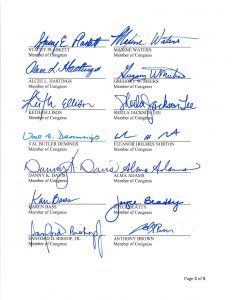 Stacey E. Plaskett Maxine Waters
STACEY PLASKETT MAXINE WATERS
Member of Congress Member of Congress
Alcee L. Hastings
ALCEE L. HASTINGS GREGORY W. MEEKS
Member of Congress Member of Congress
Keith Ellison Sheila Jackson Lee
KEITH ELLISON SHEILA JACKSON LEE
Member of Congress Member of Congress
Val B. Demings
VAL BUTLER DEMINGS ELEANOR HOLMES NORTON
Member of Congress Member of Congress
Danny K. Davis Alma Adams
DANNY K. DAVIS ALMA ADAMS
Member of Congress Member of Congress
Karen Bass Joyce Beatty
KAREN BASS JOYCE BEATTY
Member of Congress Member of Congress
Sanford Bishop
SANFORD D. BISHOP, JR. ANTHONY BROWN
Member of Congress Member of Congress
Page 3 of 5